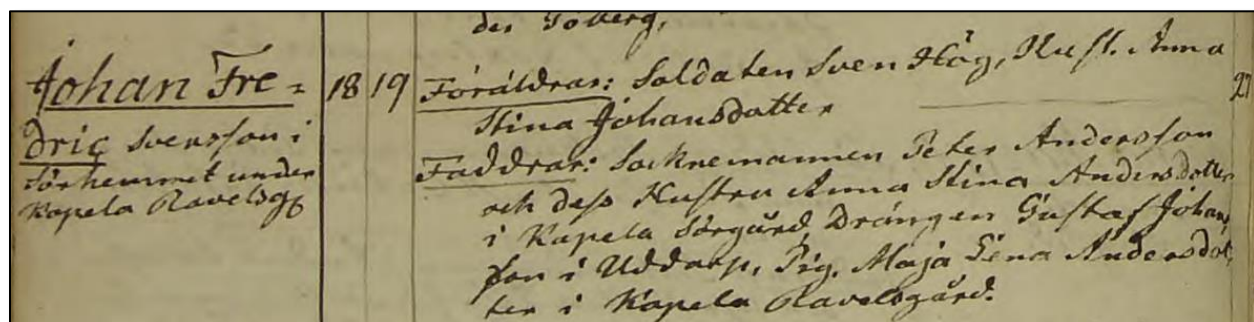 der Söberg,
Johan Fre=
dric Svensson i
Sörhemmet under
Kapela Ravelsg
18 19
Föräldrar: Soldaten Sven Hög, Hust. Anna
Stina Johansdotter
27
Faddrar: Socknemannen Peter Andersson
och dess Hustru Anna Stina Andersdotter
i Kapela Sörgård, Drängen Gustaf Johans
son i Uddarp, Pig. Maja Lena Andersdot,
ter i Kapela Ravelsgård.